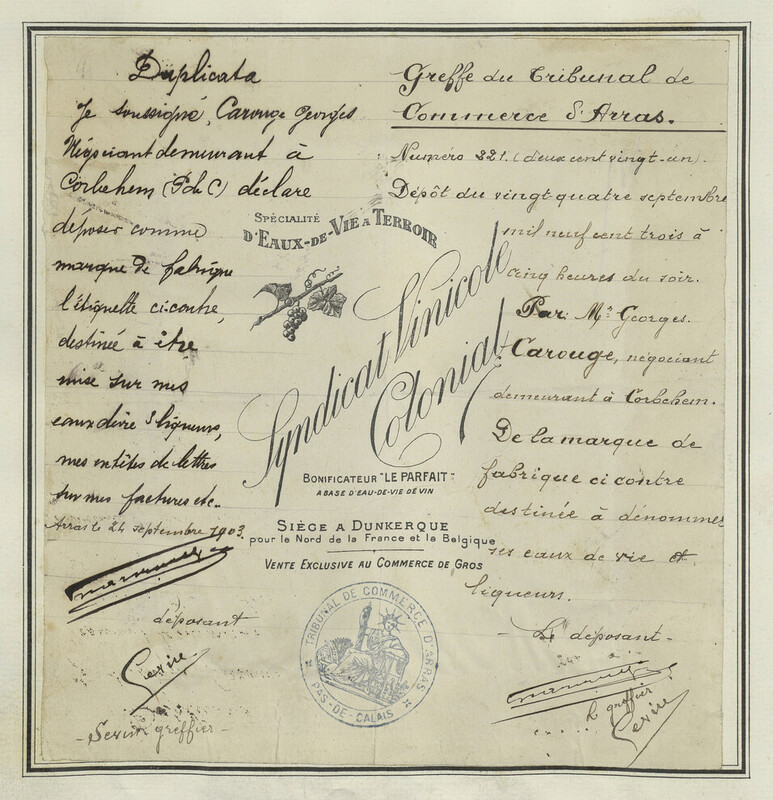 Duplicata
Je soussigné, Carouge Georges
Négociant demeurant à
Corbehem (P de C) déclare
déposer comme
marque de fabrique
l'étiquette ci contre,
destinée à être
mise sur mes
eaux de vie & liqueurs,
mes entêtes de lettres
sur mes factures etc.
Arras le 24 septembre 1903.
déposant
greffier
SPÉCIALITÉ
D'EAUX-DE-VIE À TERROIR
Syndicat Vinicole
Colonial
BONIFICATEUR "LE PARFAIT"
A BASE D'EAU-DE-VIE DE VIN
SIÈGE A DUNKERQUE
pour le Nord de la France et la Belgique
VENTE EXCLUSIVE AU COMMERCE DE GROS
TRIBUNAL DE COMMERCE D'ARRAS
PAS-DE-CALAIS
Greffe du Tribunal de
Commerce d'Arras.
Numéro 221. (deux cent vingt-un).
Dépôt du vingt quatre septembre
mil neuf cent trois à
cinq heures du soir.
Par: Mr Georges.
Carouge, négociant
demeurant à Corbehem.
De la marque de
fabrique ci contre
destinée à dénommer
ses eaux de vie et
liqueurs.
Le déposant
le greffier